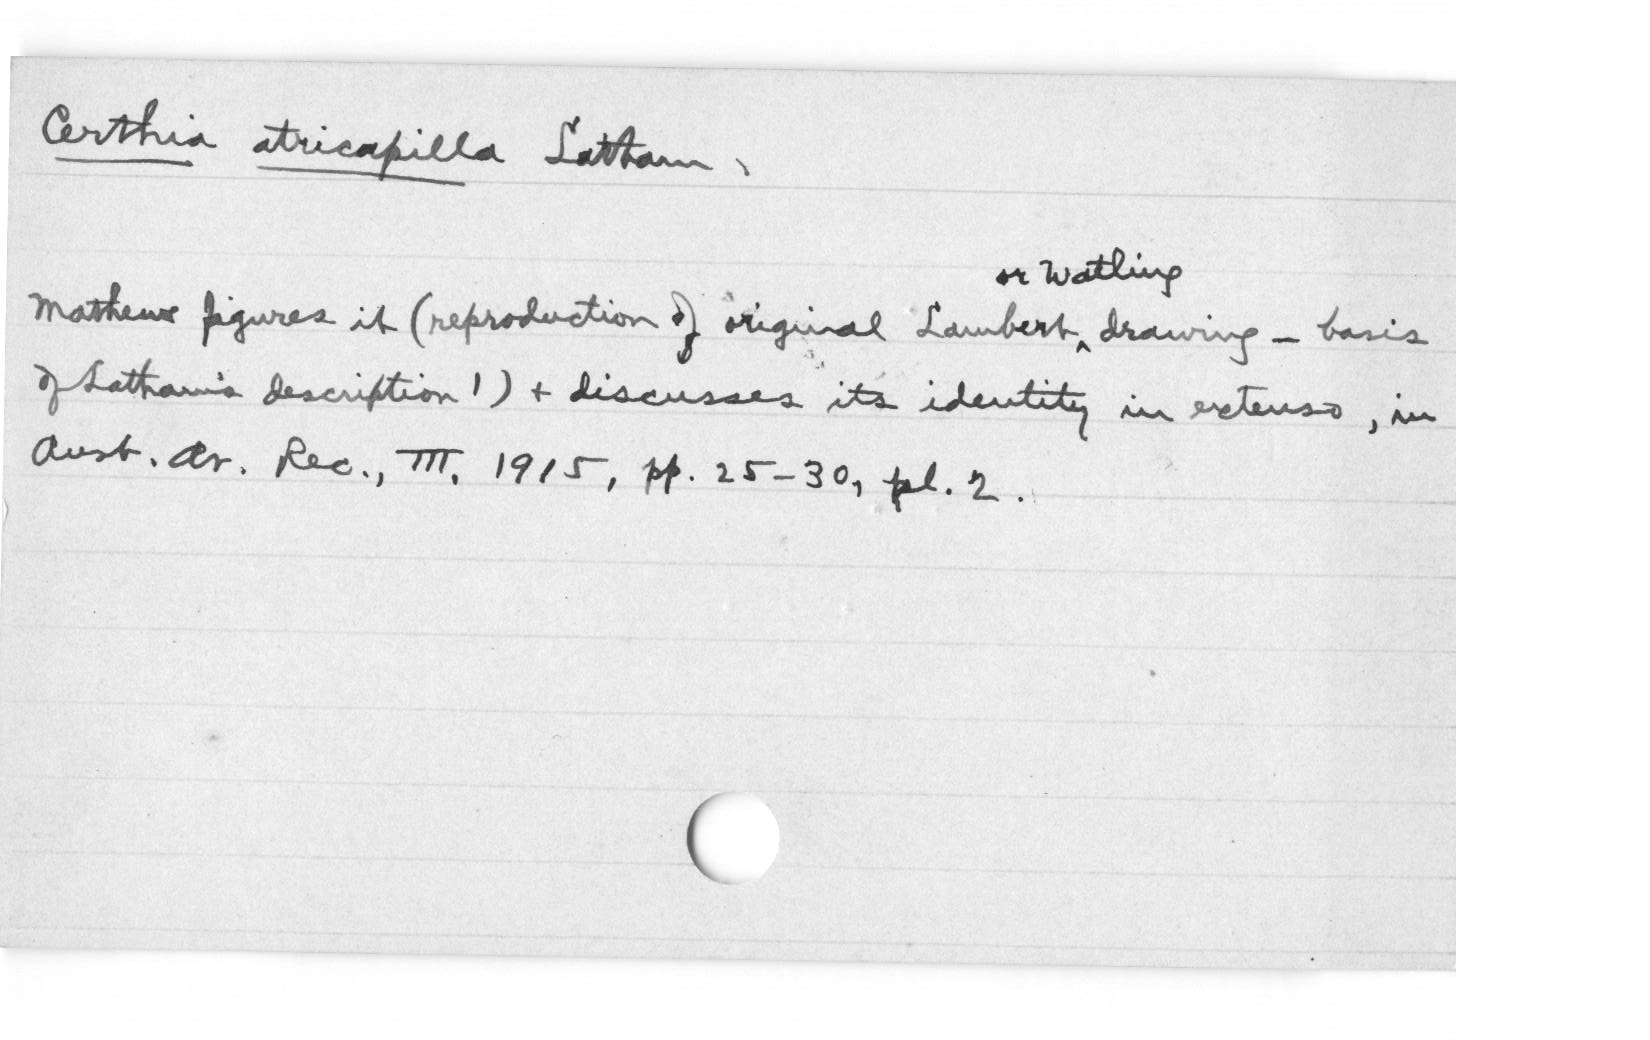 Certhia atricapilla Latham,
or Watling
Mathews figures it (reproduction of original Lambert ‸ drawing – basis
of Latham's description!) + discusses its identity in extenso, in
Aust. Av. Rec., III, 1915, pp. 25–30, pl. 2.